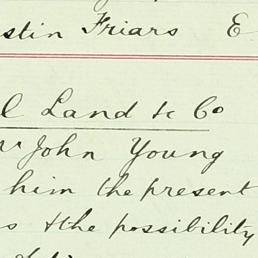 stin Friars E
l Land & Co
John Young
him the present
s & the possibility